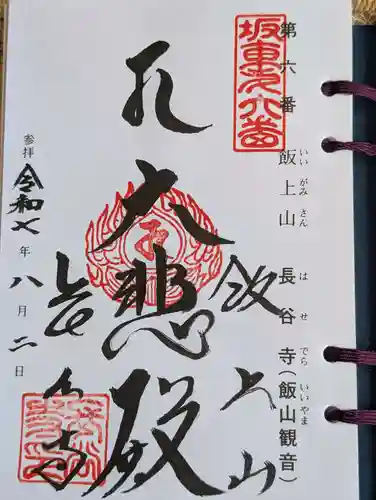 第六番 飯上山 長谷寺(飯山観音)
いい がみ さん は せ でら いいやま
坂東第六番
飯上山
礼 大悲殿
長谷寺
参拝 令和七年八月二日